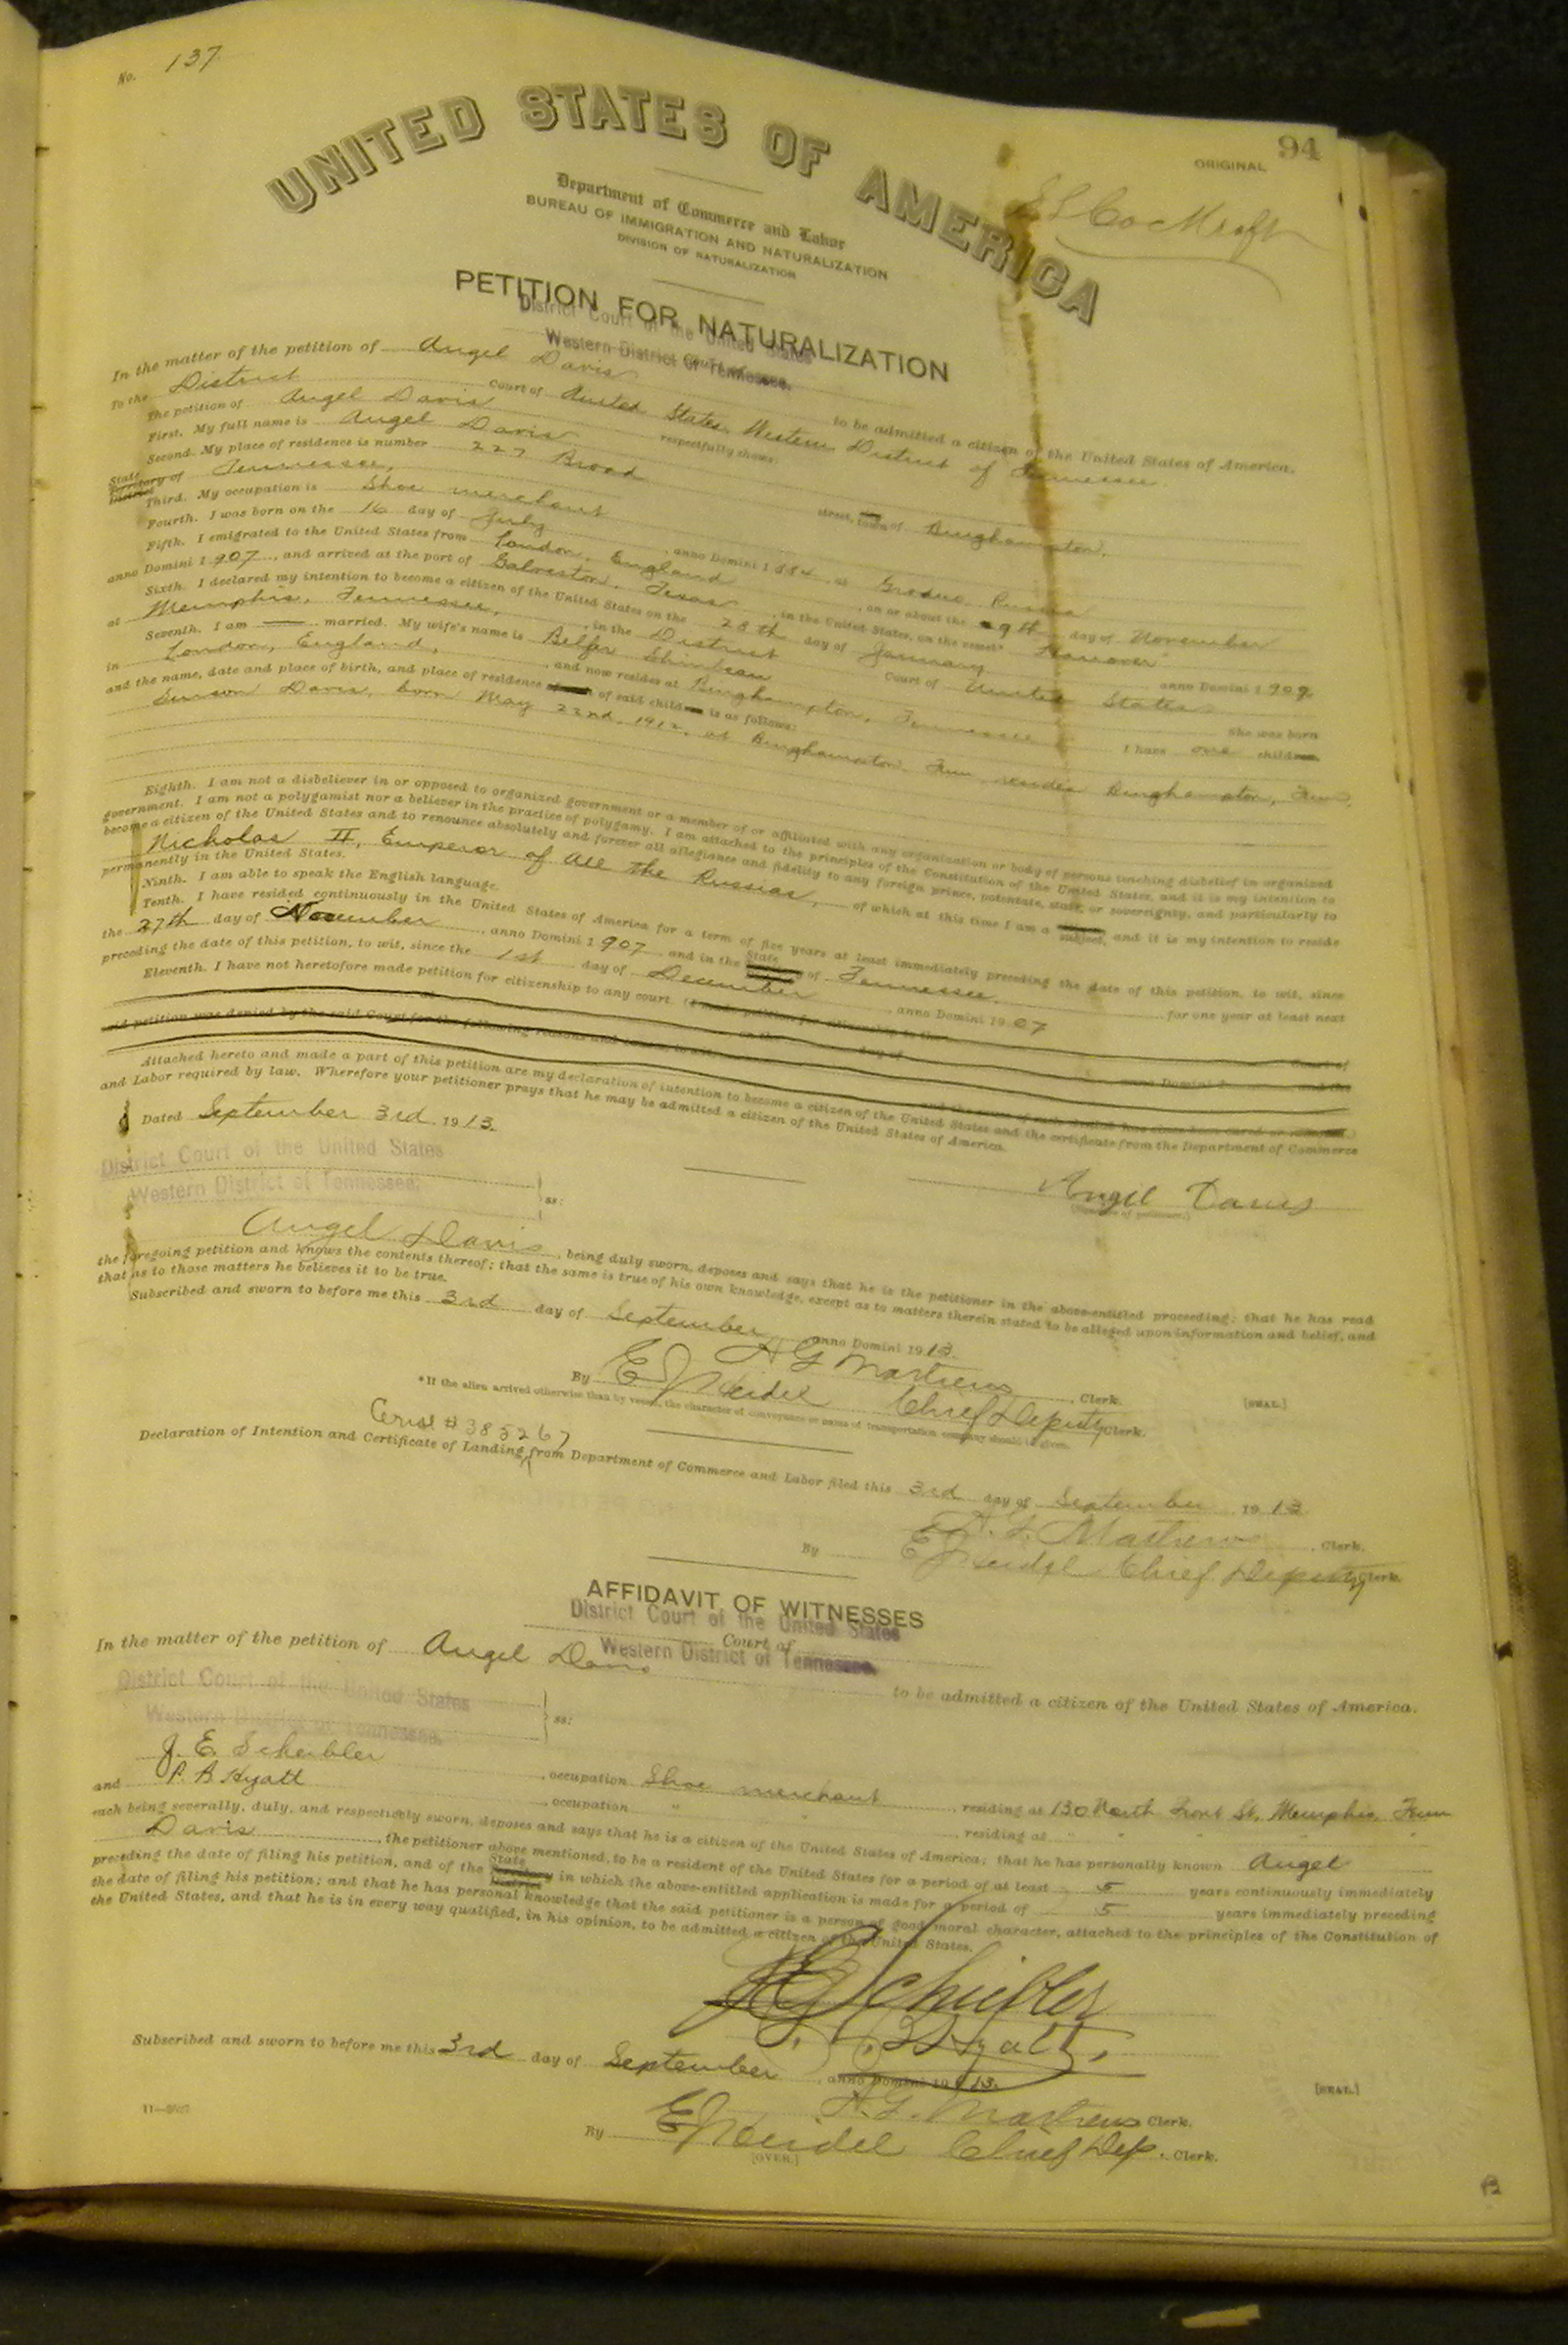 No. 137
94
ORIGINAL
UNITED STATES OF AMERICA
Department of Commerce and Labor
BUREAU OF IMMIGRATION AND NATURALIZATION
DIVISION OF NATURALIZATION
PETITION FOR NATURALIZATION
District Court of the United States
Western District of Tennessee.
In the matter of the petition of Angel Davis to be admitted a citizen of the United States of America.
To the District Court of United States Western District of Tennessee
The petition of Angel Davis respectfully shows:
First. My full name is Angel Davis
Second. My place of residence is number 227 Broad street, town of Binghampton,
State Territory District of Tennessee,
Third. My occupation is Shoe merchant
Fourth. I was born on the 16 day of July, anno Domini 1 at Russia
Fifth. I emigrated to the United States from London, England, on or about the 9th day of November
anno Domini 1907, and arrived at the port of Galveston, Texas, in the United States, on the vessel* Hanover
Sixth. I declared my intention to become a citizen of the United States on the 28th day of January anno Domini 1909
at Memphis, Tennessee, in the District Court of United States
Seventh. I am married. My wife's name is She was born
in London, England, and now resides at Binghampton, Tennessee I have one children,
and the name, date and place of birth, and place of residence of said children is as follows:
Davis, born May 22nd, 1912, at Binghampton Tenn resides Binghampton, Tenn,
Eighth. I am not a disbeliever in or opposed to organized government or a member of or affiliated with any organization or body of persons teaching disbelief in organized
government. I am not a polygamist nor a believer in the practice of polygamy. I am attached to the principles of the Constitution of the United States, and it is my intention to
become a citizen of the United States and to renounce absolutely and forever all allegiance and fidelity to any foreign prince, potentate, state, or sovereignty, and particularly to
Nicholas II, Emperor of all the Russias, of which at this time I am a subject, and it is my intention to reside
permanently in the United States.
Ninth. I am able to speak the English language.
Tenth. I have resided continuously in the United States of America for a term of five years at least immediately preceding the date of this petition, to wit, since
the 27th day of November, anno Domini 1907, and in the State of Tennessee, for one year at least next
preceding the date of this petition, to wit, since the 1st day of December, anno Domini 1907
Eleventh. I have not heretofore made petition for citizenship to any court. (I made petition for citizenship to the Court of
at on the day of anno Domini 1 and the
said petition was denied by the said Court for the following reasons and causes, to wit, and the cause of such denial has since been cured or removed.)
Attached hereto and made a part of this petition are my declaration of intention to become a citizen of the United States and the certificate from the Department of Commerce
and Labor required by law. Wherefore your petitioner prays that he may be admitted a citizen of the United States of America.
Dated September 3rd. 1913.
Angil Davis
(Signature of petitioner.)
District Court of the United States
Western District of Tennessee.
ss:
Angel Davis, being duly sworn, deposes and says that he is the petitioner in the above-entitled proceeding; that he has read
the foregoing petition and knows the contents thereof; that the same is true of his own knowledge, except as to matters therein stated to be alleged upon information and belief, and
that as to those matters he believes it to be true.
Subscribed and sworn to before me this 3rd day of September, anno Domini 1913.
A G Mathews, Clerk.
[SEAL.]
By Chief Deputy Clerk.
*If the alien arrived otherwise than by vessel, the character of conveyance or name of transportation company should be given.
Serial # 385267
Declaration of Intention and Certificate of Landing from Department of Commerce and Labor filed this 3rd day of September 1913
Mathews, Clerk.
By Chief Deputy Clerk.
AFFIDAVIT OF WITNESSES
District Court of the United States
Court of
Western District of Tennessee.
In the matter of the petition of Angel Davis to be admitted a citizen of the United States of America.
District Court of the United States
Western District of Tennessee.
ss:
J. E. Scheibler, occupation Shoe merchant, residing at 130 North Front St, Memphis, Tenn
and P. B Hyatt, occupation " ", residing at " " " " "
each being severally, duly, and respectively sworn, deposes and says that he is a citizen of the United States of America; that he has personally known Angel
Davis, the petitioner above mentioned, to be a resident of the United States for a period of at least 5 years continuously immediately
preceding the date of filing his petition, and of the State Territory District in which the above-entitled application is made for a period of 5 years immediately preceding
the date of filing his petition; and that he has personal knowledge that the said petitioner is a person of good moral character, attached to the principles of the Constitution of
the United States, and that he is in every way qualified, in his opinion, to be admitted a citizen of the United States.
Scheibler
P. B Hyatt.
Subscribed and sworn to before me this 3rd day of September, anno Domini 1913.
[SEAL.]
A. G. Mathews Clerk.
By Chief Dep. Clerk.
[OVER.]